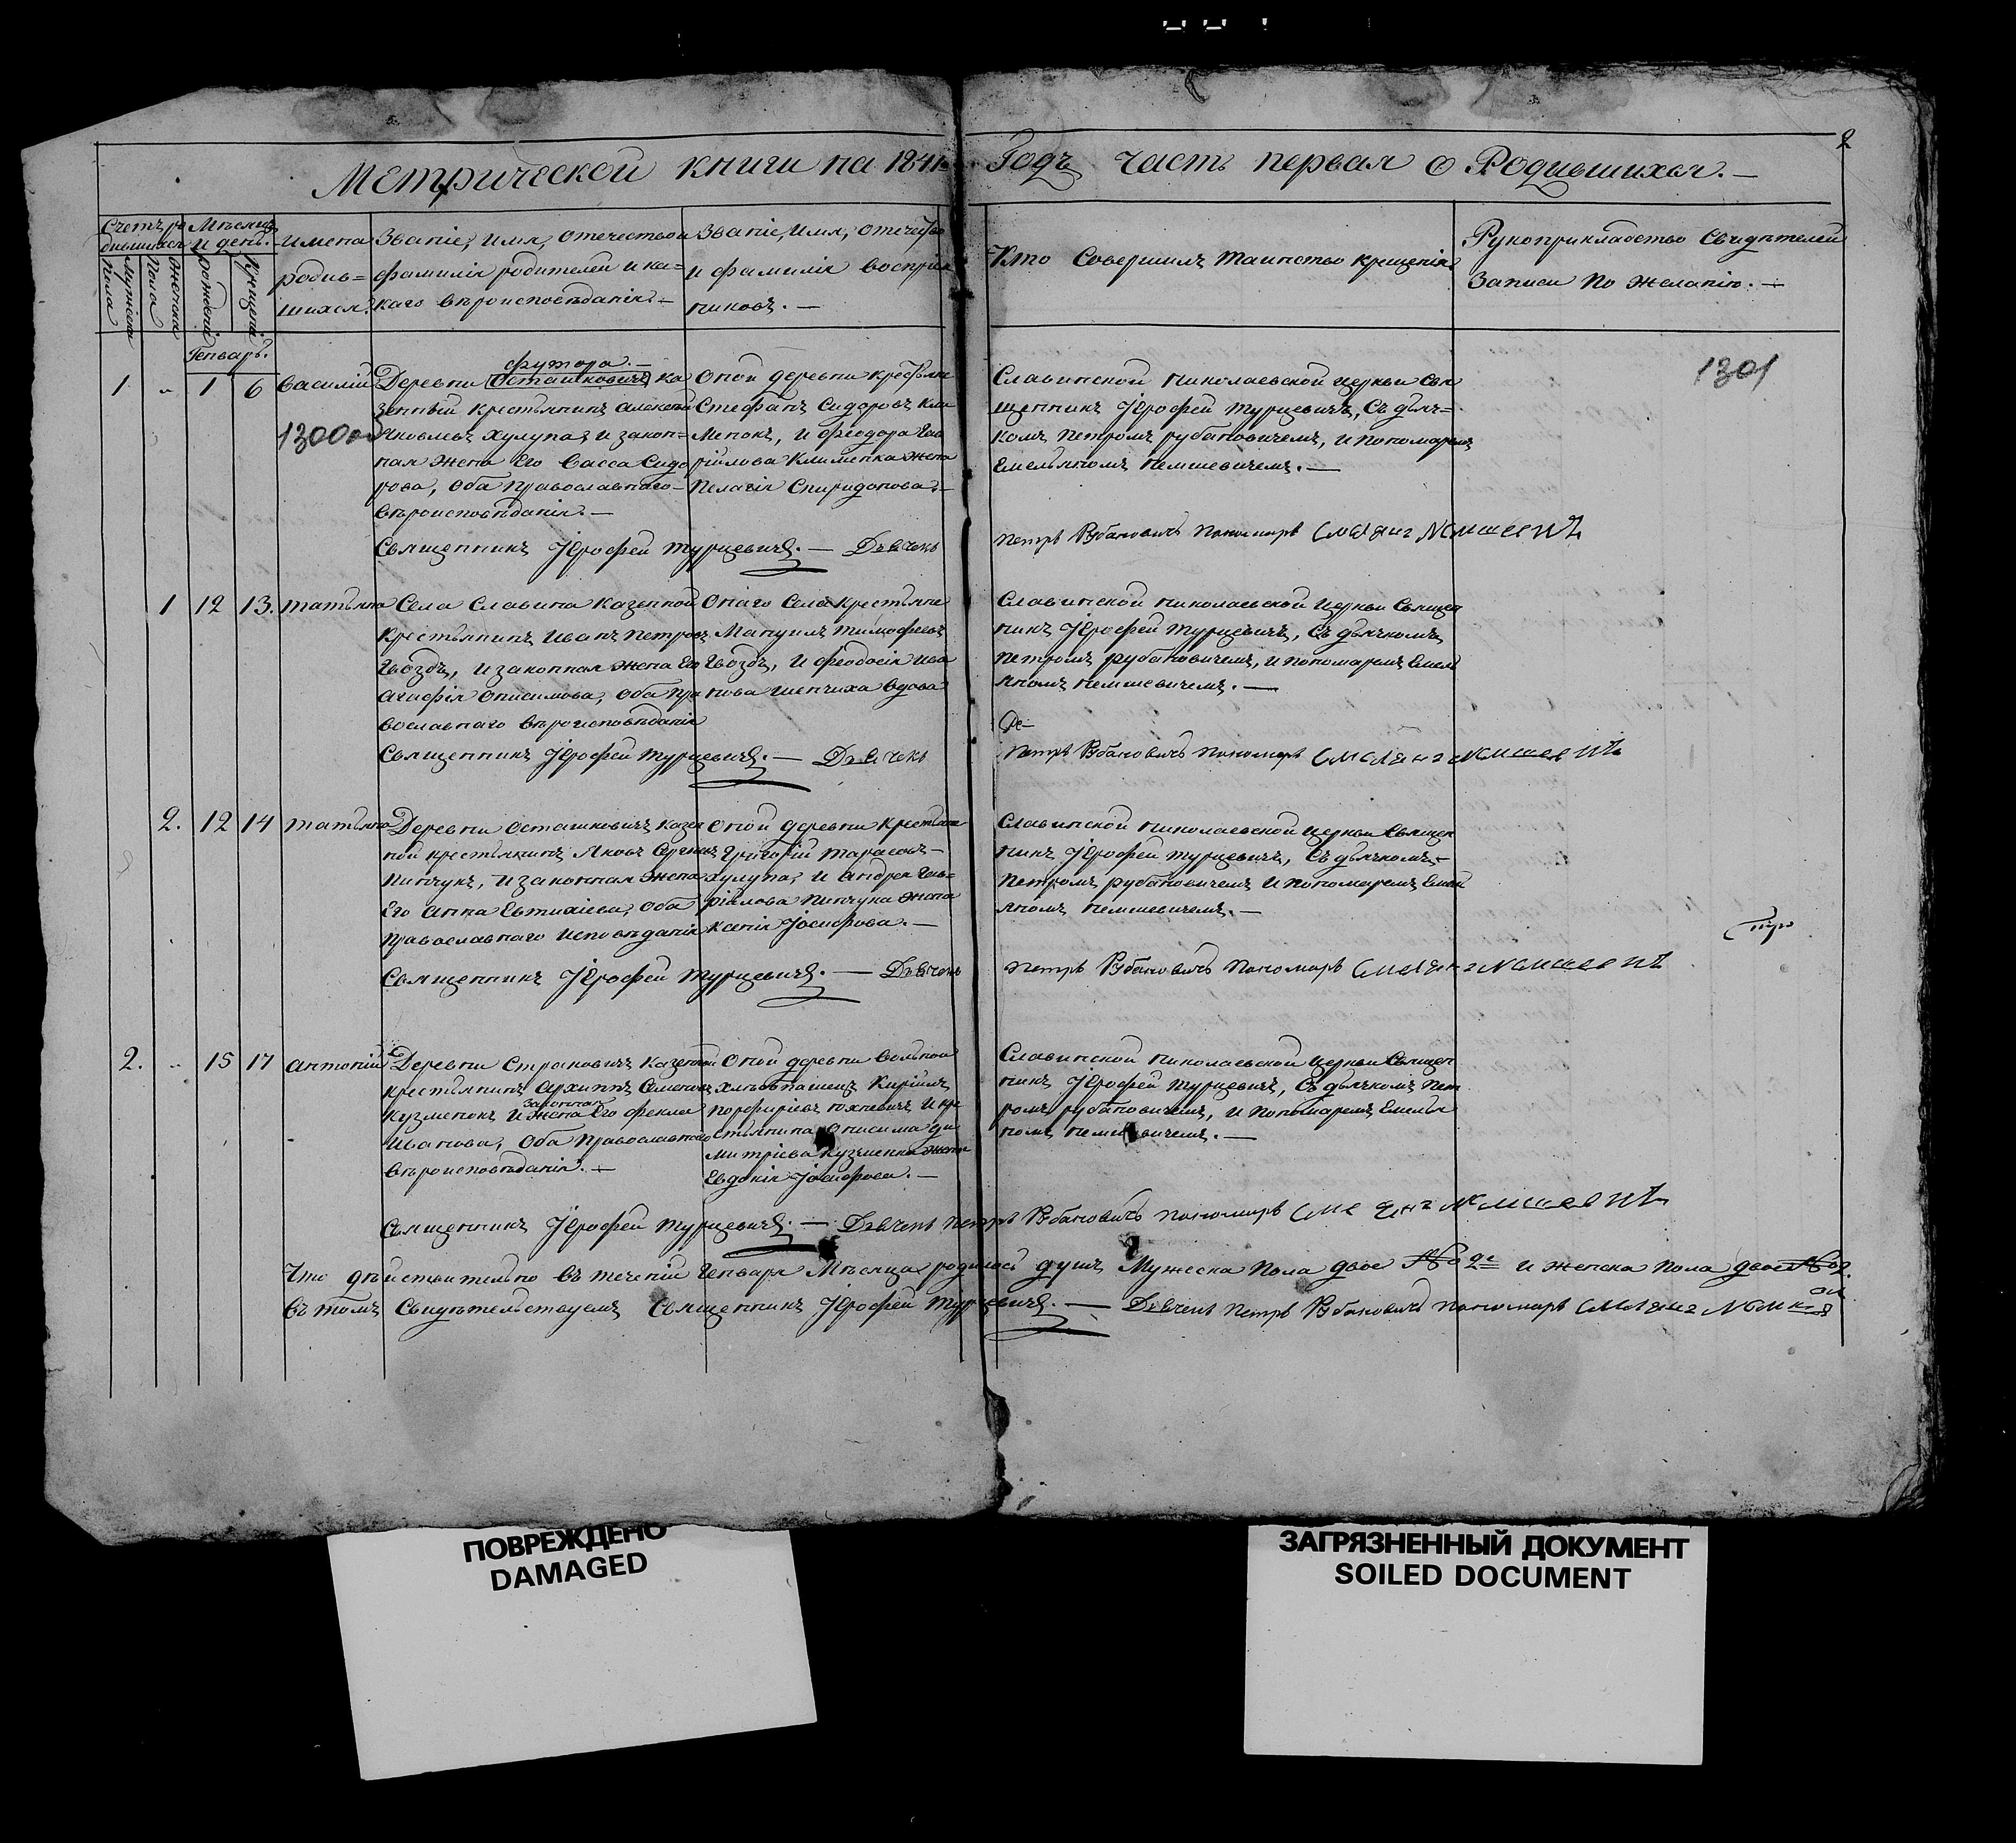 2
Метрической книги на 1841й Годъ Часть первая о Родившихся. —
Счетъ ро
дившихся
Мѣсяцъ
и день.
Мужеска
Пола
Женска
Пола
рожденія
Крещенія
Имена
родив=
шихся.
Званіе, Имя, Отечество и
фамилія родителей и ка=
каго вѣроисповѣданія. —
Званіе, Имя, Отечество
и фамилія воспріем
никовъ. —
Кто Совершилъ Таинство крещенія
Рукоприкладство Свидѣтелей
Записи По Желанію. —
Генварь.
1 „ 1 6 Василій
1300
футора. —
Деревни Осташковичъ Ка
зенный крестьянинъ Алексѣй
Яковлевъ Хулупа, и закон=
ная жена Его Васса Сидо
рова, Оба Православнаго
вѣроисповѣданія. —
Оной деревни крестьяне
Стефанъ Сидоровъ Кли
менокъ, и Феодора Гав
рійлова Клименка жена
Пелагія Спиридонова. —
Славинской Николаевской церкви Свя
щенникъ Іерофей Турцевичъ, Съ дьяч=
комъ Петромъ рубановичемъ, и пономаремъ
Емельяномъ Немшевичемъ. —
1301
Священникъ Іерофей Турцевичъ. — Дьячекъ Петръ Рубановичъ Пономаръ Емелянъ Немшевичъ
1 12 13. Татьяна
Села Славина Казенной
крестьянинъ Иванъ Петровъ
Гвоздь, и законная жена Его
Агафія Онисимова, Оба Пра
вославнаго вѣроисповѣданія
Онаго Села Крестьяне
Мануилъ Тимофеевъ
Гвоздь, и Феодосія Ива
нова Шепчиха Вдова
Славинской Николаевской Церкви Священ
никъ Іерофей Турцевичъ, Съ дьячкомъ
Петромъ рубановичемъ, и пономаремъ Емель
яномъ Немшевичемъ. —
Священникъ Іерофей Турцевичъ. — Дьячекъ Петръ Рубановичъ Пономаръ Емелянъ Немшевичъ
2. 12 14 Татьяна
Деревни Осташковичъ казен
ной крестьянинъ Яковъ Сергеевъ
Пинчукъ, и законная жена
Его Анна Евтихіева, Оба
Православнаго исповѣданія
Оной деревни Крестьяне
Григорій Тарасовъ —
Хулупа, и Андрея Гав=
рійлова Пинчука жена
Ксенія Іосифова. —
Славинской Николаевской Церкви Священ
никъ Іерофей Турцевичъ, Съ дьячкомъ
Петромъ рубановичемъ и пономаремъ Емель
яномъ Немшевичемъ. —
Священникъ Іерофей Турцевичъ. — Дьячекъ Петръ Рубановичъ Пономаръ Емелянъ Немшевичъ
2. „ 15 17 Антоній
Деревни Страковичъ Казенной
крестьянинъ Архиппъ Семеновъ
законная
Кузменокъ и жена Его Фекла
Иванова, Оба Православнаго
вѣроисповѣданія. —
Оной деревни Вольной
хлѣбпашецъ Кирійлъ
Порфиріевъ Юхневичъ и кре
стьянина Онисима Ди
митріева Кузменка жена
Евдокія Іосифова. —
Славинской Николаевской Церкви Священ
никъ Іерофей Турцевичъ, Съ дьячкомъ Пет
ромъ рубановичемъ, и Пономаремъ Емелья
номъ Немшевичемъ. —
Священникъ Іерофей Турцевичъ. — Дьячекъ Петръ Рубановичъ Пономаръ Емелянъ Немшевичъ
Что дѣйствительно въ теченіи Генваря Мѣсяца родилось душъ Мужеска Пола двое № 2е и женска пола двое № 2.
Въ томъ Свидѣтельствуемъ Священникъ Іерофей Турцевичъ. — Дьячекъ Петръ Рубановичъ Пономаръ Емелянъ
ПОВРЕЖДЕНО
DAMAGED
ЗАГРЯЗНЕННЫЙ ДОКУМЕНТ
SOILED DOCUMENT